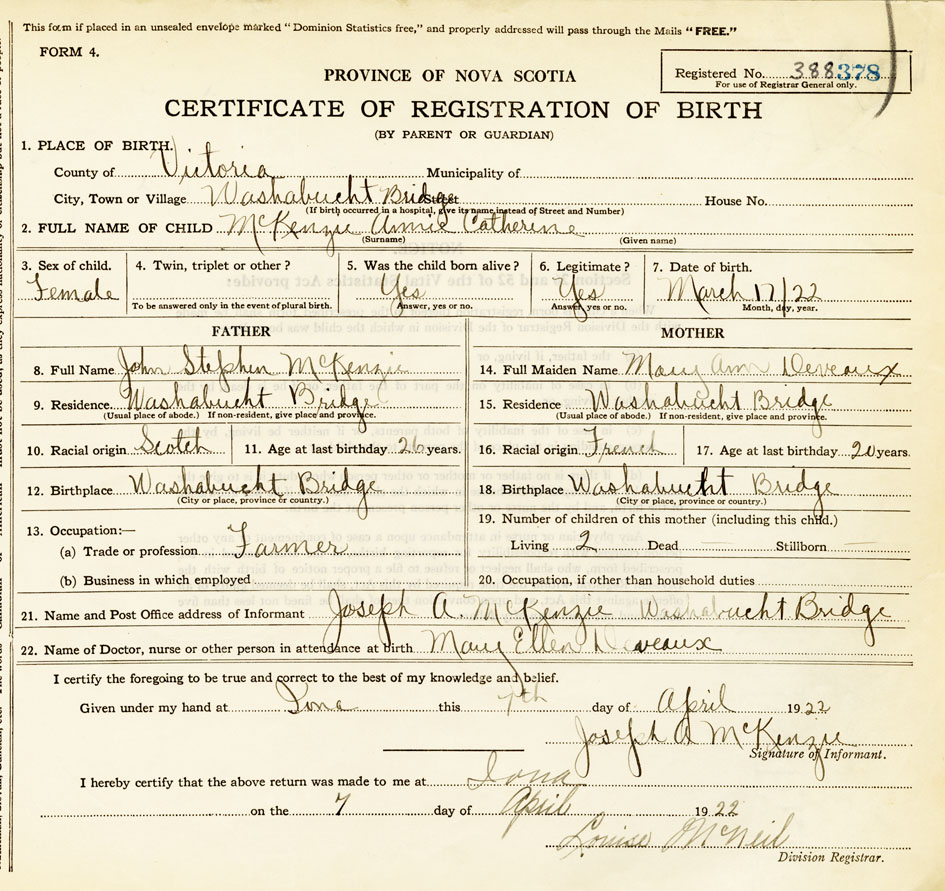 This form if placed in an unsealed envelope marked "Dominion Statistics free," and properly addressed will pass through the Mails "FREE."
FORM 4.
PROVINCE OF NOVA SCOTIA
Registered No. 388 378
For use of Registrar General only.
CERTIFICATE OF REGISTRATION OF BIRTH
(BY PARENT OR GUARDIAN)
1. PLACE OF BIRTH.
County of Victoria Municipality of
City, Town or Village Washabucht Bridge Street House No.
(If birth occurred in a hospital, give its name instead of Street and Number)
2. FULL NAME OF CHILD McKenzie Annie Catherine
(Surname) (Given name)
3. Sex of child. 4. Twin, triplet or other? 5. Was the child born alive? 6. Legitimate? 7. Date of birth.
Female Yes Yes March 17/22
To be answered only in the event of plural birth. Answer, yes or no. Answer, yes or no. Month, day, year.
FATHER MOTHER
8. Full Name John Stephen McKenzie 14. Full Maiden Name Mary Ann Deveaux
9. Residence. Washabucht Bridge 15. Residence Washabucht Bridge
(Usual place of abode.) If non-resident, give place and province. (Usual place of abode.) If non-resident, give place and province.
10. Racial origin Scotch 11. Age at last birthday 26 years. 16. Racial origin French 17. Age at last birthday 20 years.
12. Birthplace Washabucht Bridge 18. Birthplace Washabucht Bridge
(City or place, province or country.) (City or place, province or country.)
13. Occupation:— 19. Number of children of this mother (including this child.)
(a) Trade or profession Farmer Living 2 Dead Stillborn
(b) Business in which employed 20. Occupation, if other than household duties
21. Name and Post Office address of Informant Joseph A. McKenzie Washabucht Bridge
22. Name of Doctor, nurse or other person in attendance at birth Mary Ellen Deveaux
I certify the foregoing to be true and correct to the best of my knowledge and belief.
Given under my hand at Iona this 7th day of April 1922
Joseph A McKenzie
Signature of Informant.
I hereby certify that the above return was made to me at Iona
on the 7 day of April 1922
Louise McNeil
Division Registrar.